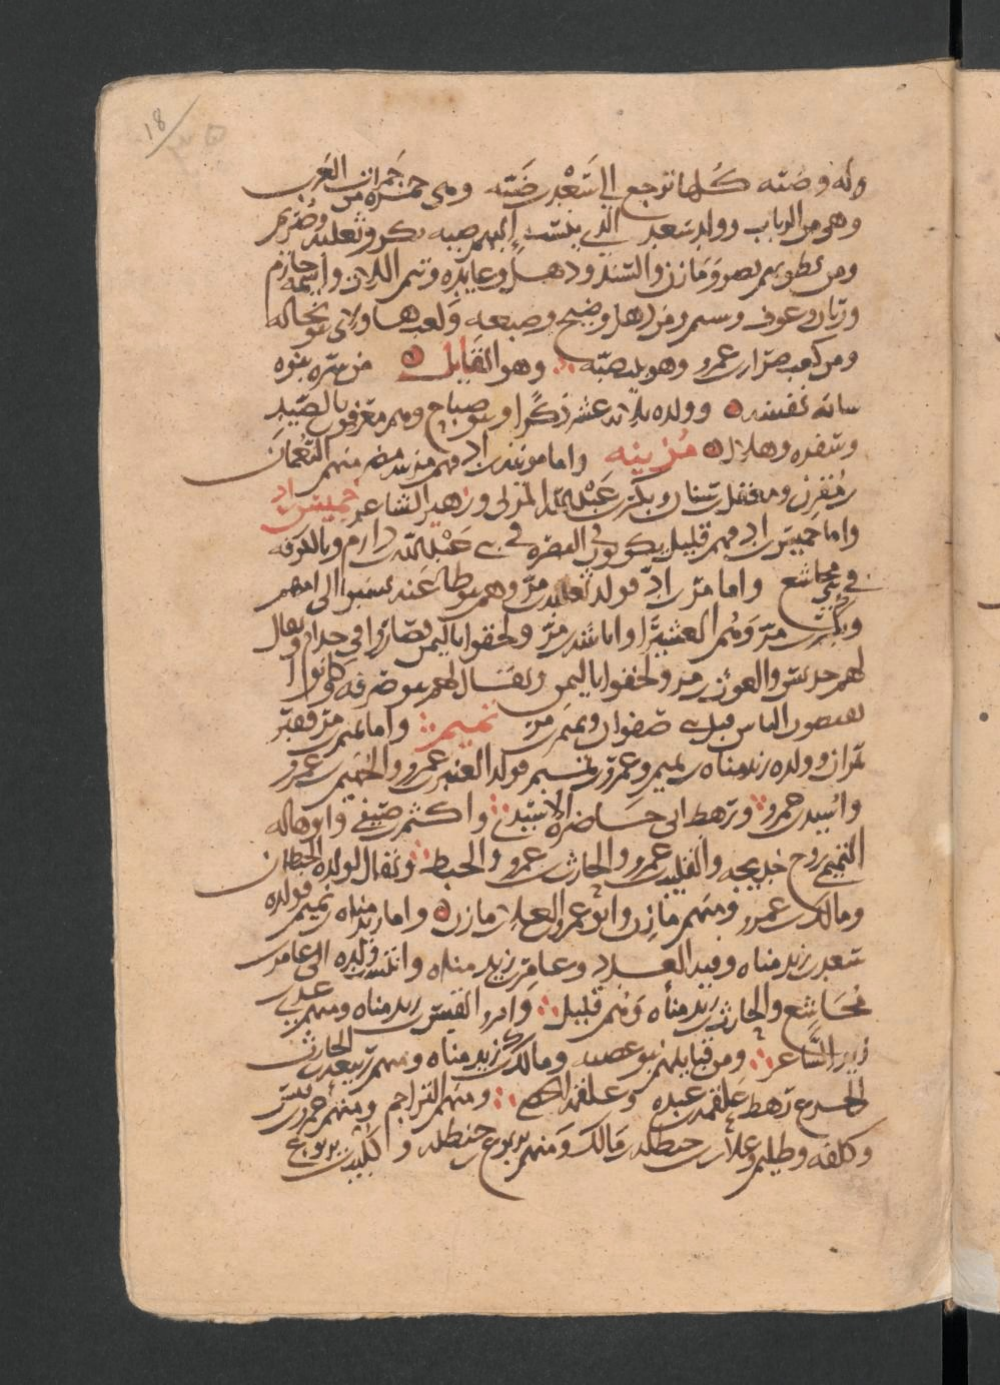 18
وضبة كلها ترجع الى سَعْد بن ضَبّه وهى جمرة من جَمرات العَرب
وهى من الرباب وولد سَعد الذي ينسب إليهم ضبه بكر وثعلبه وصريم
ومن بطونهم نصر ومَازن والسّيد وذهل وعايذه وتيم اللات وحازم
وزبان وعوف وضبيح
ومن كعب ضرار بن عمرو وهو سيد ضبّه وهو القايل من سَرّه بنوه
ساته نفسه وولده ثلاثه عشر ذكرًا وبنو صباح وهم معرفون بالصَيد
وشقره وهلال مُزينه واما مزينه بن اد فهم مزينه مضر منهم النُعمان
بن مُقرن ومعقل بن سنان وبكر بن عَبْد الله المزنى وزهير الشاعر حميس بن اد
واما حميس بن اد فهم قليل يكونون فى البصره فى بنى عَبْد الله بن دارم وبالكوفه
في بنى مجاشع واما مرّ بن ادّ فولد ثعلبه بن مرّ وهم بنو ظاعنه نسبوا الى امهم
وبكر بن مرّ وهُم الشعيرَا واراشه بن مرّ ولحقوا باليمن فصاروا فى جذام ويقال
لهم حدس والغوث بن مر ولحقوا باليمن ويقال لهم بنو صوفه كانوا
يفيضون الناس قبل بنى صفوان وتميم بن مرّ تميم واما تميم بن مرّ فقبره
بمران وولده زيد مناه بن تميم وعمرو بن تميم فولد العنبر بن عمرو والهجيم بن عمرو
واسيد بن عمرو ورهط ابى حَاضره الاسَيّدى واكثم بن صَيفى وابو هاله
التميمى زوج خديجه والقليب بن عمرو والحارث بن عمرو والحبط ويقال لولده الحبطات
ومالك بن عمرو ومنهم مازن وابو عمرو بن العلا بن مازن واما زيد مناه بن تميم فولده
سَعد بن زيد مناه وفيه العدد وعامر بن زيد مناه وانتسب ولده الى عامر بن
مُجَاشع والحارث بن زيد مناه وهُم قليل وامرو القيس بن زيد مناه ومنهم عدى بن
زيد الشاعر ومن قبايلهم بنو عصيه ومالك بن زيد مناه ومنهم ربيعه بن الحارث
رهط عَلقمه بن عبده وعلقمه ومنهم البَراجم ومنهم عمرو وقيس
وكلفه وظليم وغلاب بن حنظله بن مَالك وَمنهم يربوع بن حنظله وكليب بن يربوع